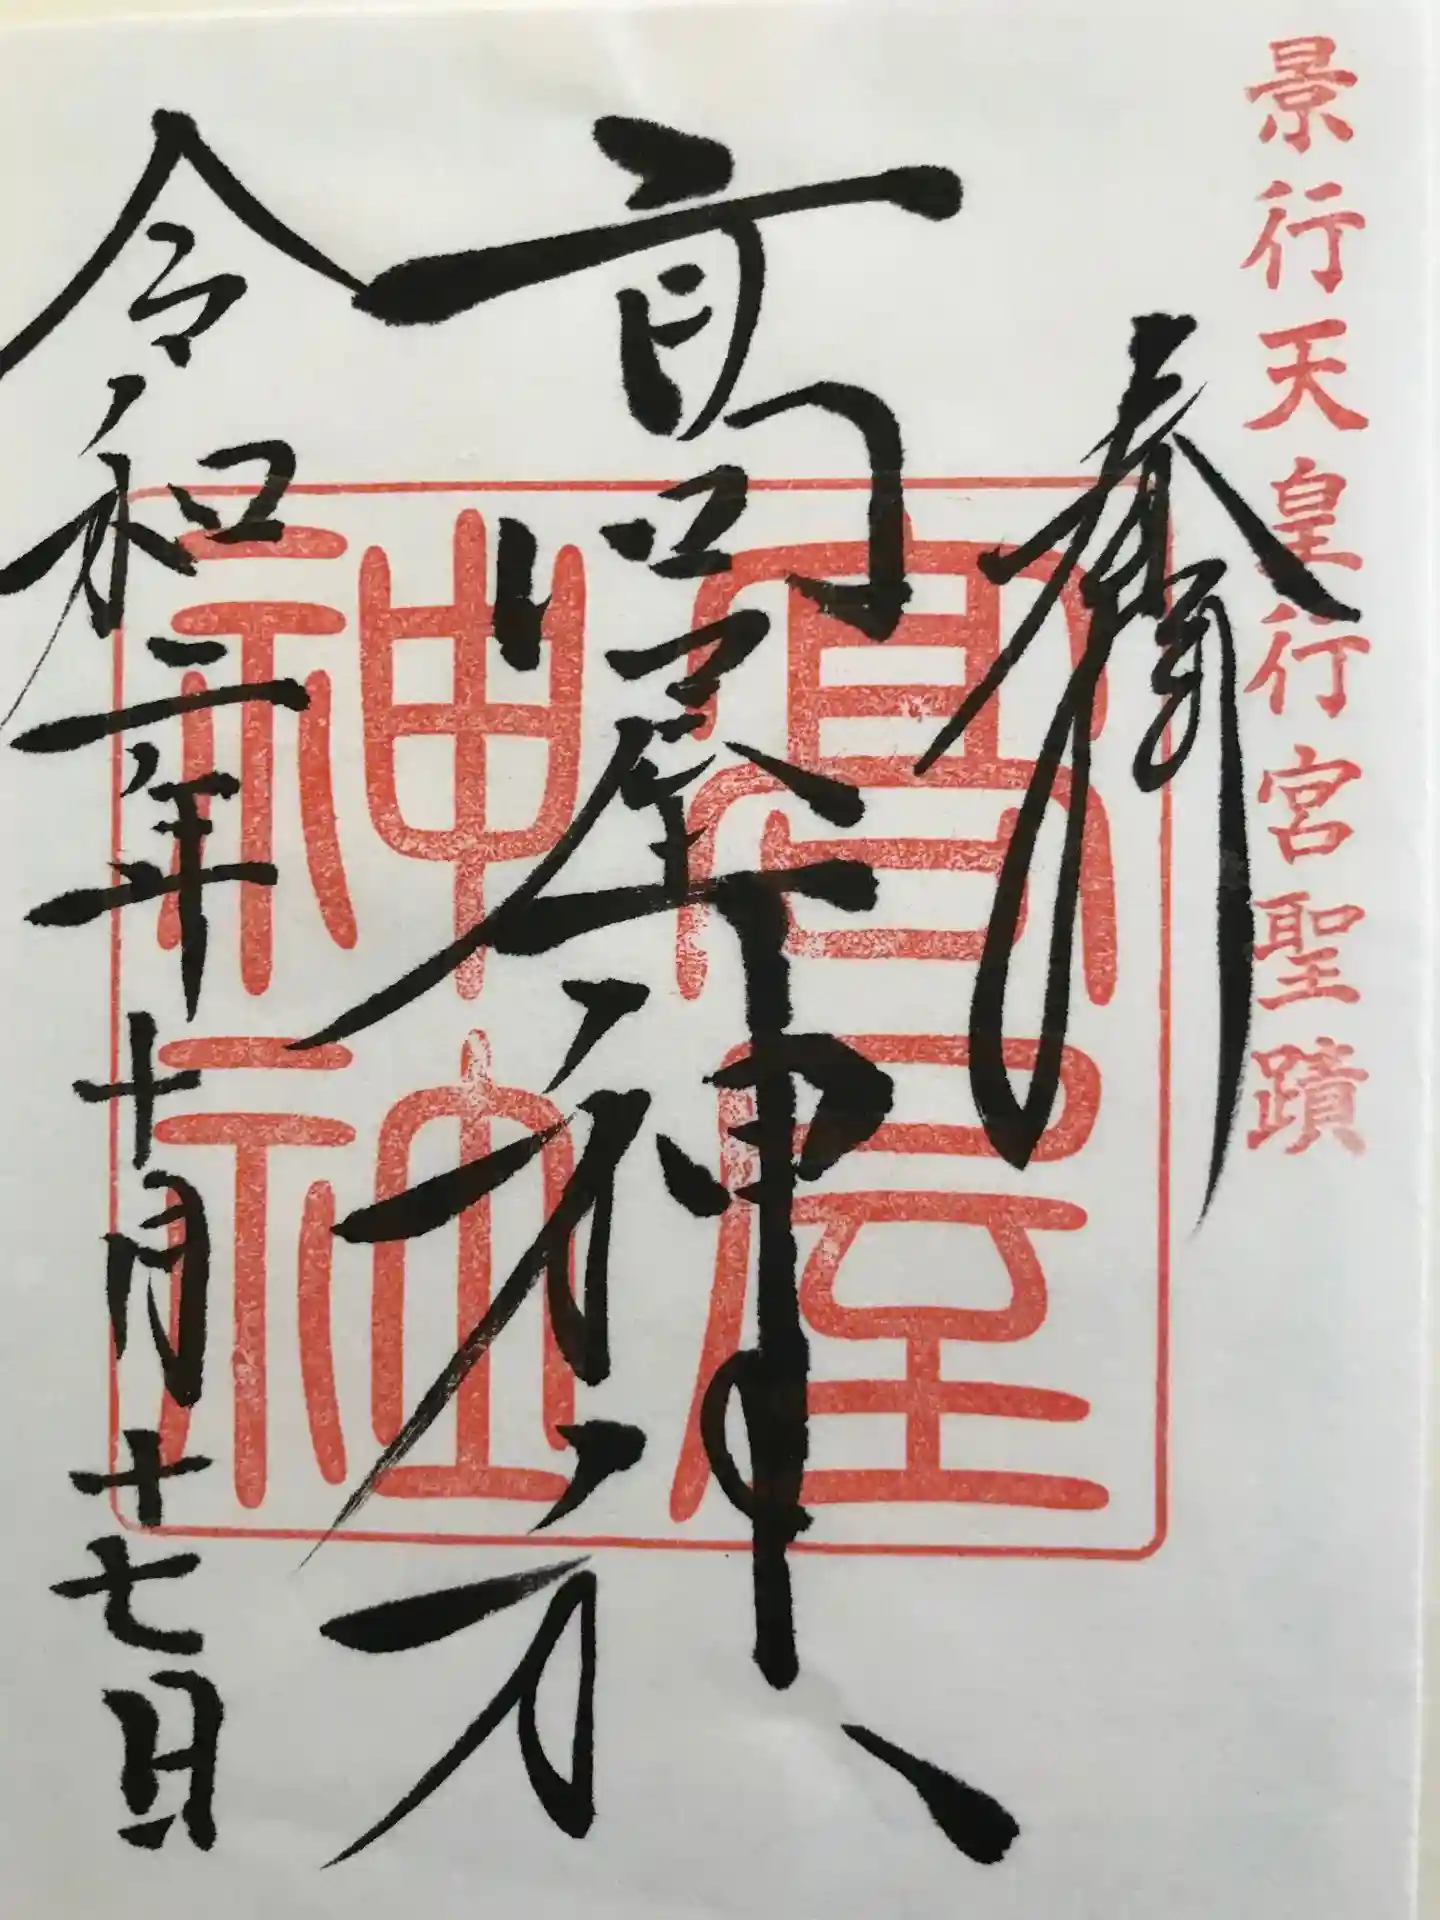 景行天皇行宮聖蹟
奉拝
高屋神社
高屋
神社
令和二年十月十七日